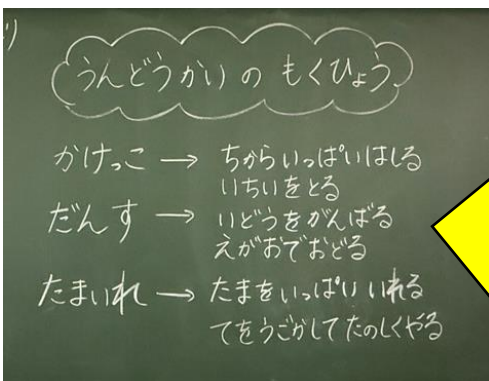 うんどうかいの もくひょう
かけっこ → ちからいっぱいはしる
いちいをとる
だんす → いどうをがんばる
えがおでおどる
たまいれ → たまをいっぱい いれる
てをうごかして たのしくやる